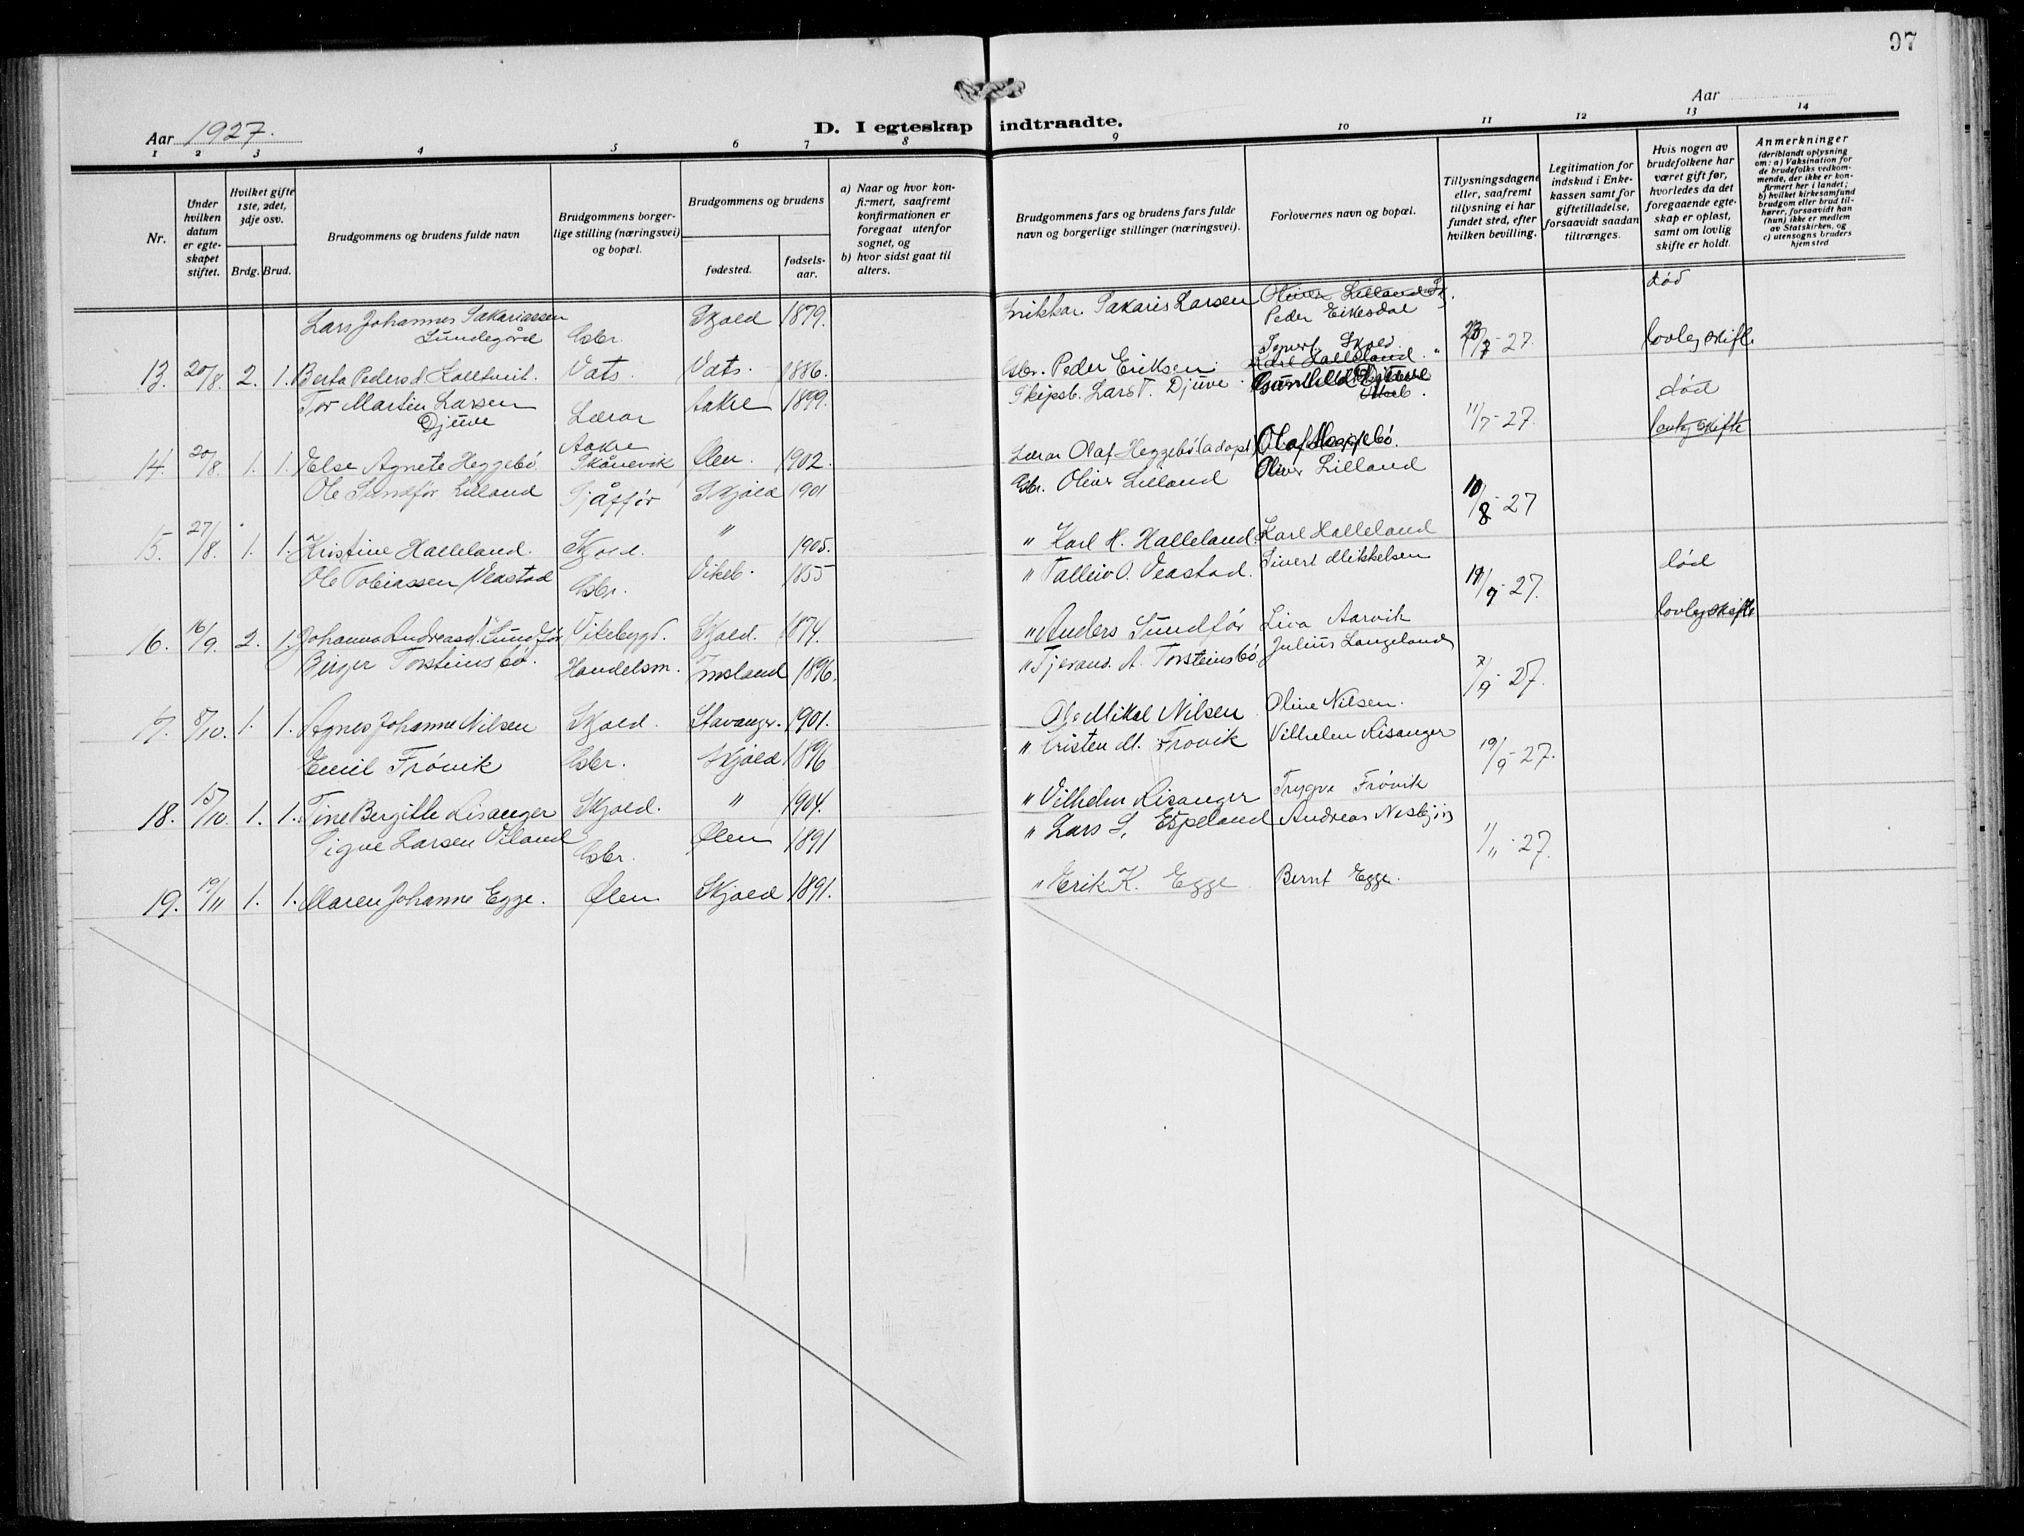 97
Aar 1927.
D. I egteskap indtraadte.
Aar
1 2 3 4 5 6 7 8 9 10 11 12 13 14
Nr.
Under hvilken datum er egteskapet stiftet.
Hvilket gifte 1ste, 2det, 3dje osv.
Brdg. Brud.
Brudgommens og brudens fulde navn
Brudgommens borgerlige stilling (næringsvei) og bopæl.
Brudgommens og brudens
fødested.
fødselsaar.
a) Naar og hvor konfirmert, saafremt konfirmationen er foregaat utenfor sognet, og
b) hvor sidst gaat til alters.
Brudgommens fars og brudens fars fulde navn og borgerlige stillinger (næringsvei).
Forlovernes navn og bopæl.
Tillysningsdagene eller, saafremt tillysning ei har fundet sted, efter hvilken bevilling.
Legitimation for indskud i Enkekassen samt for giftetilladelse, forsaavidt saadan tiltrænges.
Hvis nogen av brudefolkene har været gift før, hvorledes da det foregaaende egteskap er opløst, samt om lovlig skifte er holdt.
Anmerkninger
(deriblandt oplysning om: a) Vaksination for de brudefolks vedkommende, der ikke er konfirmert her i landet; b) hvilket kirkesamfund brudgom eller brud tilhører, forsaavidt han (hun) ikke er medlem av Statskirken, og c) utensogns bruders hjemsted
Lars Johannes Sakariassen Lundegård Gbr. Skjold 1879. Sakaris Larsen Oliver Lilland Sk. Peder Eikesdal død
13. 20/8. 2. 1. Berta Pedersd. Vats. Vats. 1886. Gbr. Peder Eriksen Skjold. Karl Halleland 27. lovleg skifte
Tor Martin Larsen Djuve Lærar Aakre 1899. Skipsb. Lars T. Djuve. død
14. 20/8. 1. 1. Else Agnete Heggebö Aakre Skånevik Ølen. 1902. Lærar Olaf Heggebö (adopt) Olaf Heggebö. 11/7-27. lovleg skifte
Ole Sundför Lilland Sjåffør Skjold 1901 Gbr. Oliver Lilland Oliver Lilland
15. 27/8. 1. 1. Kristine Halleland. Skjold. " 1905. " Karl H. Halleland Karl Halleland 10/8 27
Ole Tobiassen Veastad Gbr. Vikeb. 1855 " Talleiv O. Veastad. Sivert Mikkelsen død
16. 16/9. 2. 1. Johanna Andreasd. Sundför Vikebygd. Skjold. 1874. " Anders Sundför Liva Aarvik 27. lovleg skifte
Birger Torsteinsbö. Handelsm. Imsland 1896. " Tjerand A. Torsteinsbö Julius Langeland
17. 8/10. 1. 1. Agnes Johanne Nilsen Skjold. Stavanger. 1901. Ole Mikal Nilsen Oline Nilsen. 7/9-27.
Emil Frövik Gbr. Skjold 1896 " Kristen M. Frövik Vilhelm Risanger
18. 15/10. 1. 1. Tine Bergitte Risanger Skjold. " 1904. " Vilhelm Risanger Trygve Frövik 19/9-27.
Sigve Larsen Viland Gbr. Ølen 1891 " Lars S. Espeland Andreas
19. 19/11 1. 1. Maren Johanne Egge. Ølen Skjold 1891. " Erik K. Egge Bernt Egge. 1/11-27.